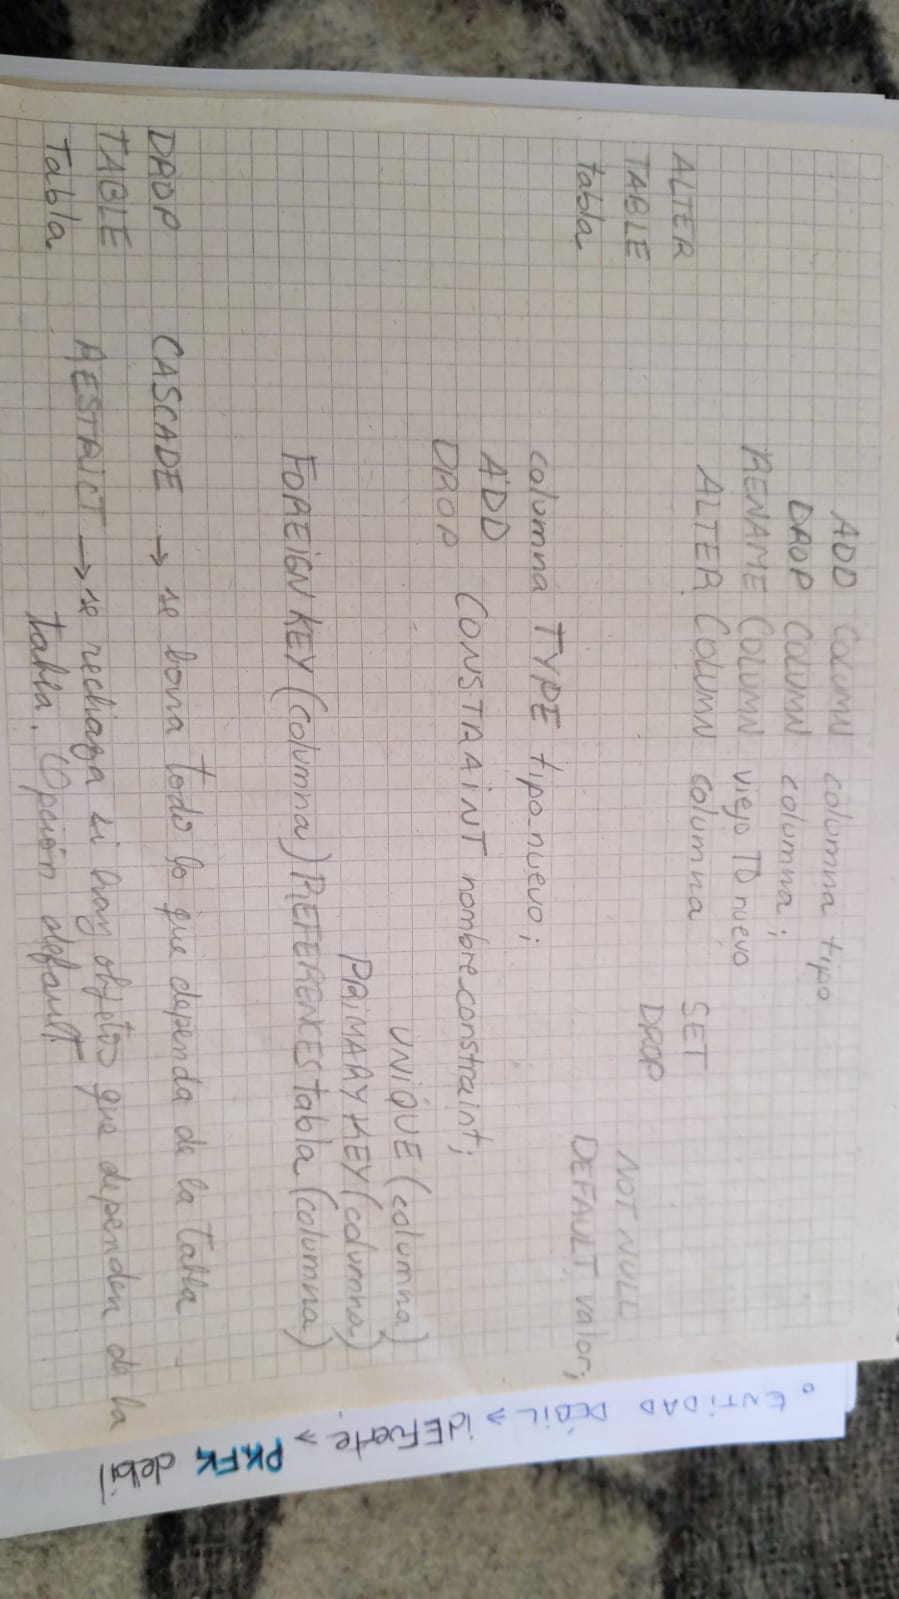 ADD COLUMN columna tipo
DROP COLUMN columna;
RENAME COLUMN viejo TO nuevo
ALTER COLUMN columna SET
DROP
NOT NULL
DEFAULT valor;
ALTER
TABLE
tabla
columna TYPE tipo_nuevo;
ADD
DROP
CONSTRAINT nombre_constraint;
UNIQUE (columna)
PRIMARY KEY (columna)
FOREIGN KEY (columna) REFERENCES tabla (columna)
DROP
TABLE
Tabla
CASCADE → se borra todo lo que dependa de la tabla
RESTRICT → se rechaza si hay objetos que dependen de la
tabla. Opción default
◦ ENTIDAD DÉBIL > idEFuerte > PK,FK debil